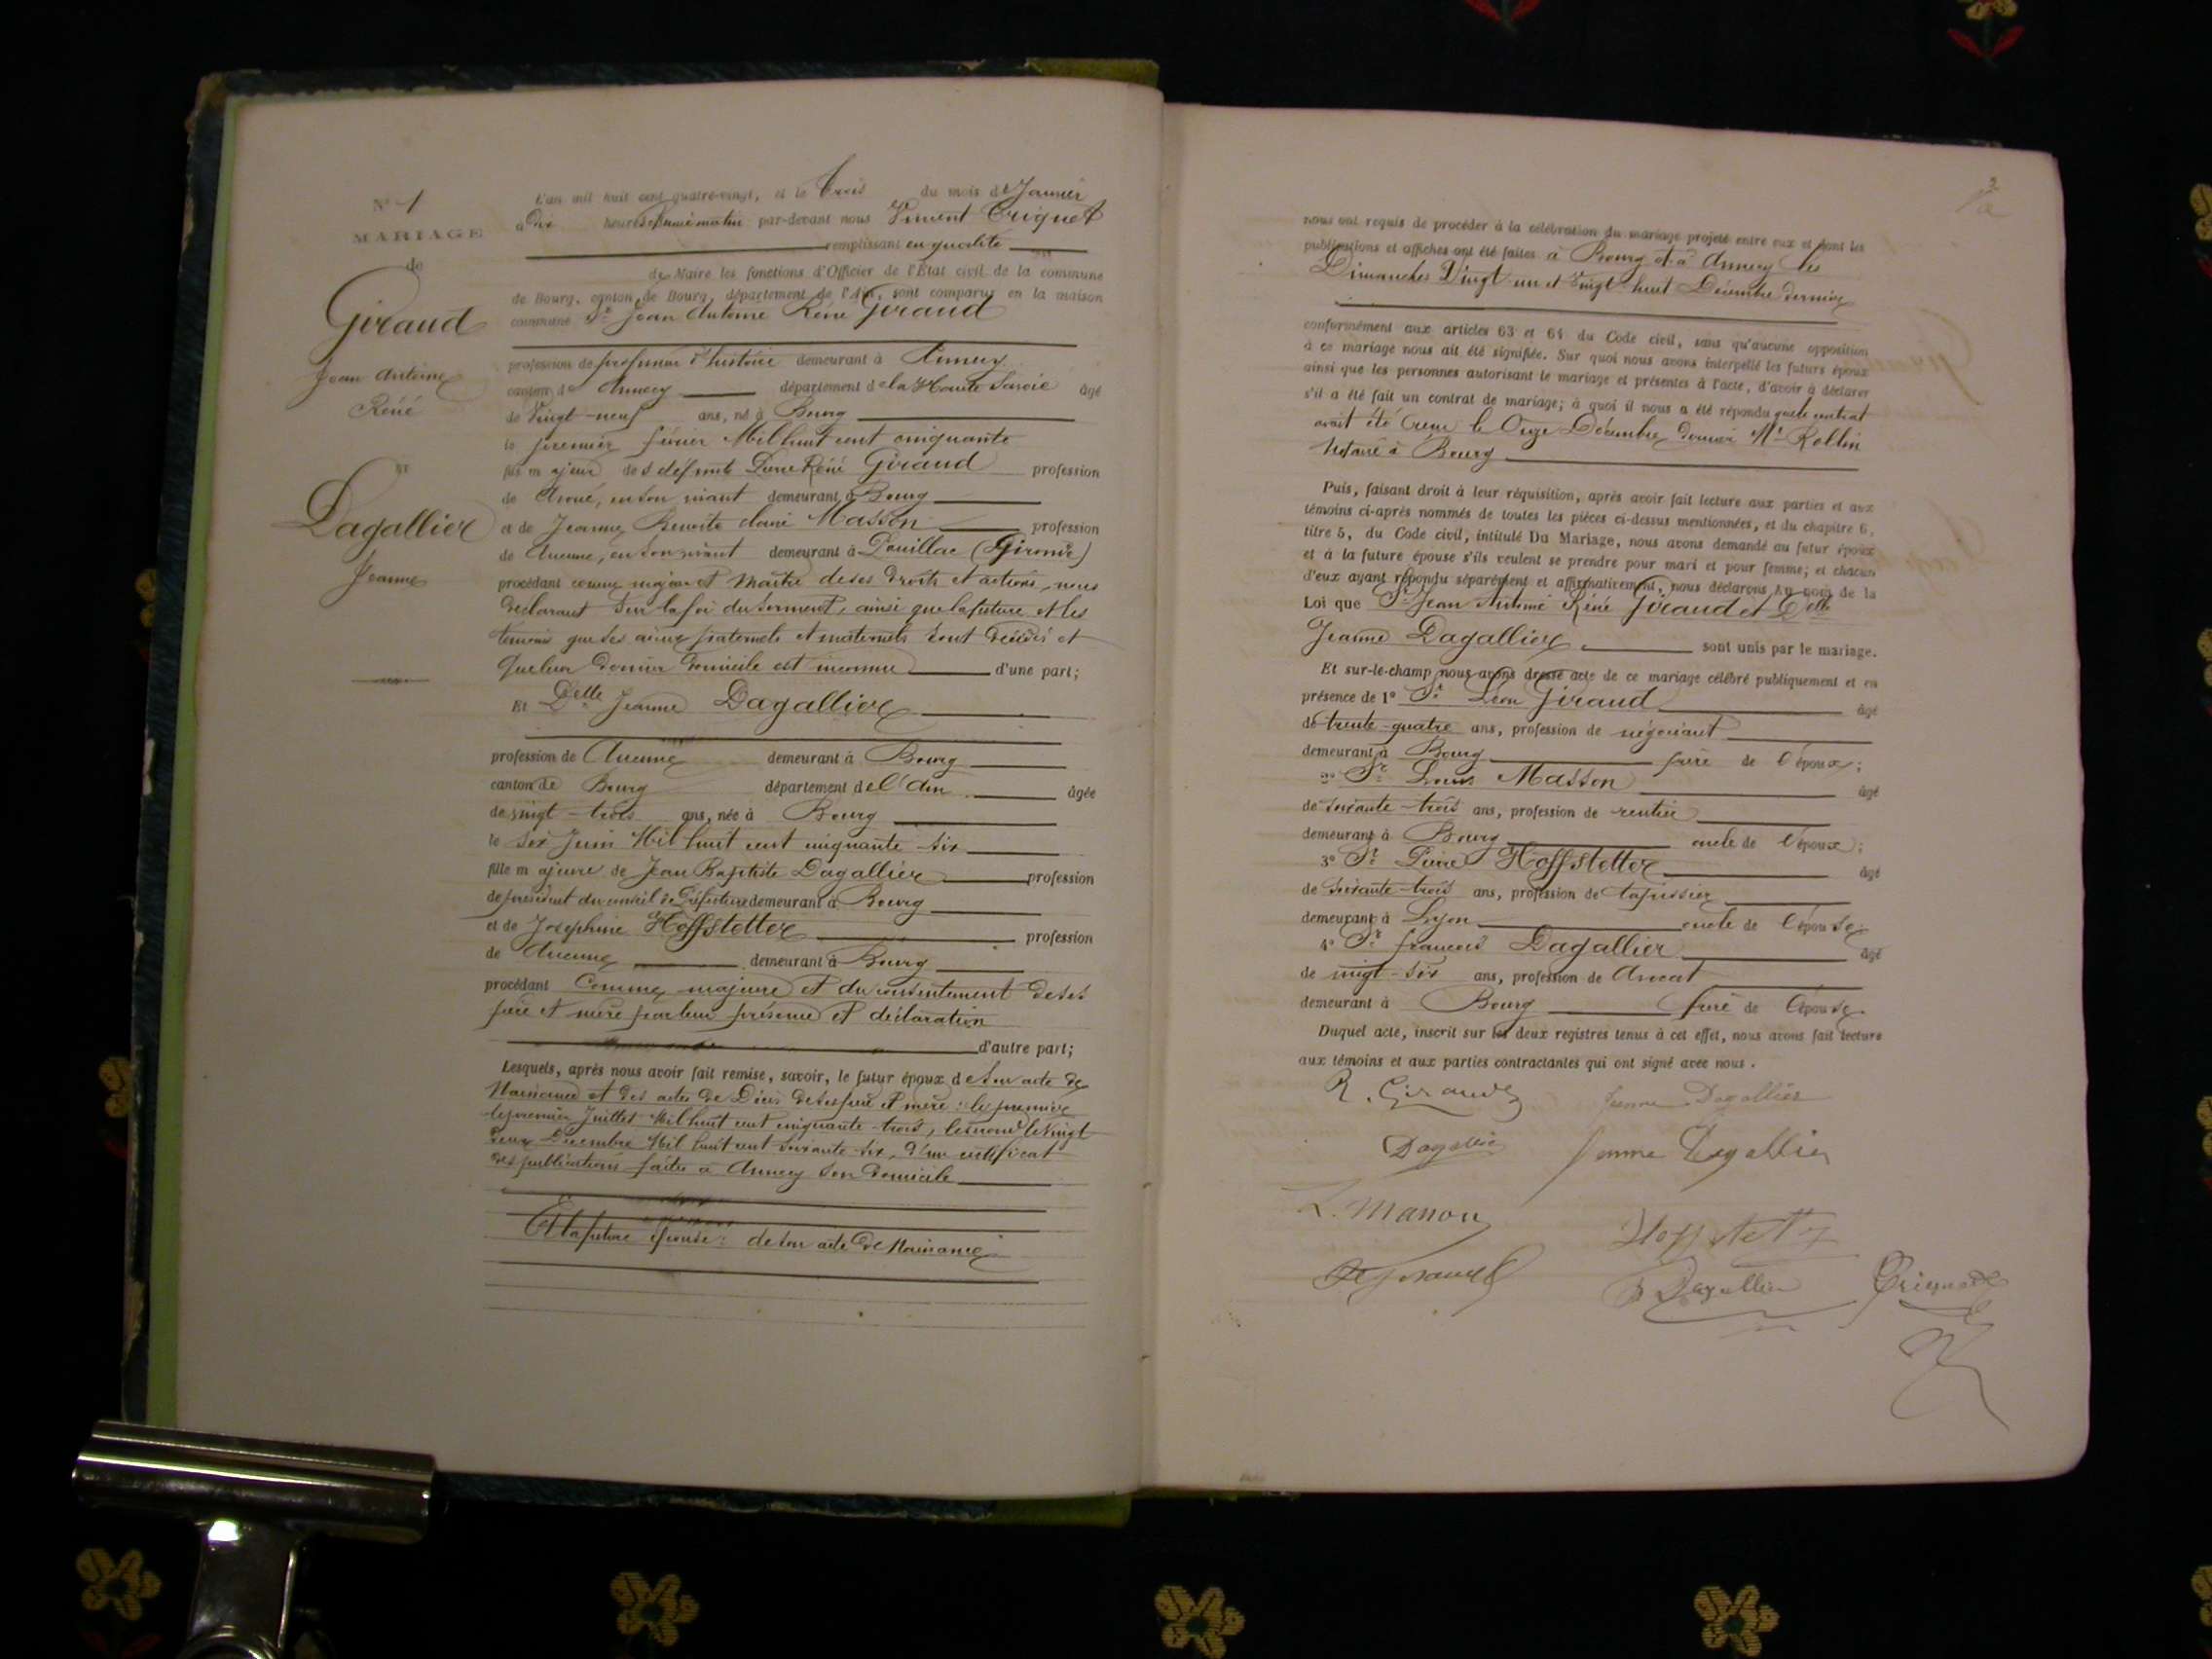 N° 1
MARIAGE
de
Giraud
Jean Antoine
René
et
Dagallier
Jeanne
L'an mil huit cent quatre-vingt, et le trois du mois de Janvier
à dix heures du matin par-devant nous Vincent
remplissant en qualité
de Maire les fonctions d'Officier de l'État civil de la commune
de Bourg, canton de Bourg, département de l'Ain, sont comparus en la maison
commune Sr Jean Antoine René Giraud
profession de professeur d'histoire demeurant à Annecy
canton d' Annecy département de la Haute Savoie âgé
de Vingt-neuf ans, né à Bourg
le premier février Mil huit cent cinquante
fils majeur des défunts Pierre René Giraud profession
de Avoué, en son vivant demeurant à Bourg
et de Jeanne Benoite Masson profession
de Aucune, en son vivant demeurant à Pauillac (Gironde)
procédant comme majeur et Maître de ses droits et actions, nous
déclarant sur la foi du serment, ainsi que la future et les
témoins que ses aïeux paternels et maternels sont décédés et
que leur dernier domicile est inconnu d'une part;
Et Delle Jeanne Dagallier
profession de Aucune demeurant à Bourg
canton de Bourg département de l'Ain âgée
de vingt-trois ans, née à Bourg
le six Juin Mil huit cent cinquante-six
fille majeure de Jean Baptiste Dagallier profession
de président du conseil de Préfecture demeurant à Bourg
et de Joséphine Hoffstetter profession
de Aucune demeurant à Bourg
procédant Comme majeure et du consentement de ses
père et mère par leur présence et déclaration
d'autre part;
Lesquels, après nous avoir fait remise, savoir, le futur époux de son acte de
Naissance et des actes de Décès de ses père et mère : le premier
le premier Juillet Mil huit cent cinquante-trois, le second le Vingt
deux Décembre Mil huit cent soixante-six, d'un certificat
des publications faites à Annecy son domicile
Et la future épouse : de son acte de Naissance
2
nous ont requis de procéder à la célébration du mariage projeté entre eux et dont les
publications et affiches ont été faites à Bourg et à Annecy les
Dimanches Vingt-un et Vingt-huit Décembre dernier
conformément aux articles 63 et 64 du Code civil, sans qu'aucune opposition
à ce mariage nous ait été signifiée. Sur quoi nous avons interpellé les futurs époux
ainsi que les personnes autorisant le mariage et présentes à l'acte, d'avoir à déclarer
s'il a été fait un contrat de mariage; à quoi il nous a été répondu que le contrat
avait été reçu le Onze Décembre dernier Me Rollin
Notaire à Bourg
Puis, faisant droit à leur réquisition, après avoir fait lecture aux parties et aux
témoins ci-après nommés de toutes les pièces ci-dessus mentionnées, et du chapitre 6,
titre 5, du Code civil, intitulé Du Mariage, nous avons demandé au futur époux
et à la future épouse s'ils veulent se prendre pour mari et pour femme; et chacun
d'eux ayant répondu séparément et affirmativement, nous déclarons Au nom de la
Loi que Sr Jean Antoine René Giraud et Delle
Jeanne Dagallier sont unis par le mariage.
Et sur-le-champ nous avons dressé acte de ce mariage célébré publiquement et en
présence de 1° Sr Léon Giraud âgé
de trente-quatre ans, profession de négociant
demeurant à Bourg frère de l'époux;
2° Sr Louis Masson âgé
de soixante-trois ans, profession de rentier
demeurant à Bourg oncle de l'époux;
3° Sr Pierre Hoffstetter âgé
de soixante-trois ans, profession de tapissier
demeurant à Lyon oncle de l'épouse
4° Sr francois Dagallier âgé
de vingt-six ans, profession de Avocat
demeurant à Bourg frère de l'épouse.
Duquel acte, inscrit sur les deux registres tenus à cet effet, nous avons fait lecture
aux témoins et aux parties contractantes qui ont signé avec nous.
R. Giraud Jeanne Dagallier
Dagallier Dagallier
L. Masson Hoffstetter
Giraud Dagallier